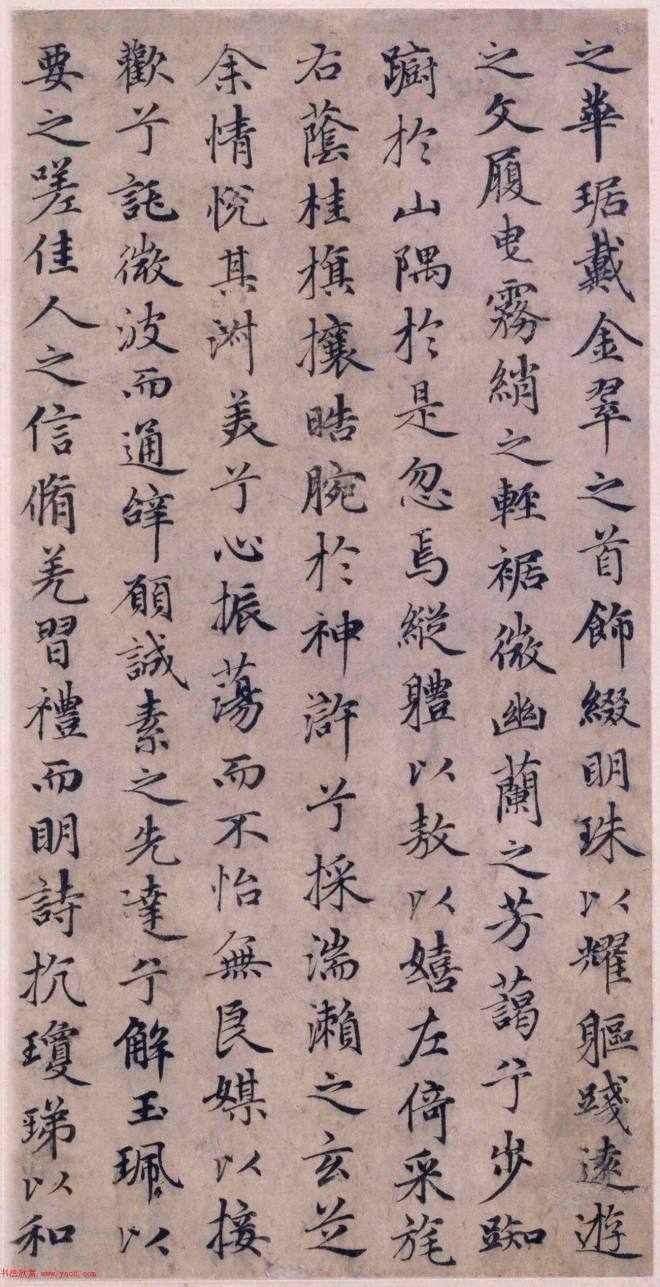 之華琚戴金翠之首飾綴明珠以耀軀踐遠遊
之文履曳霧綃之輕裾微幽蘭之芳藹兮步踟
蹰於山隅於是忽焉縱體以敖以嬉左倚采旄
右蔭桂旗攘皓腕於神滸兮採湍瀨之玄芝
余情悅其淑美兮心振蕩而不怡無良媒以接
歡兮託微波而通辭願誠素之先達兮解玉珮以
要之嗟佳人之信脩羌習禮而明詩抗瓊珶以和
书法欣赏 www.yac8.com